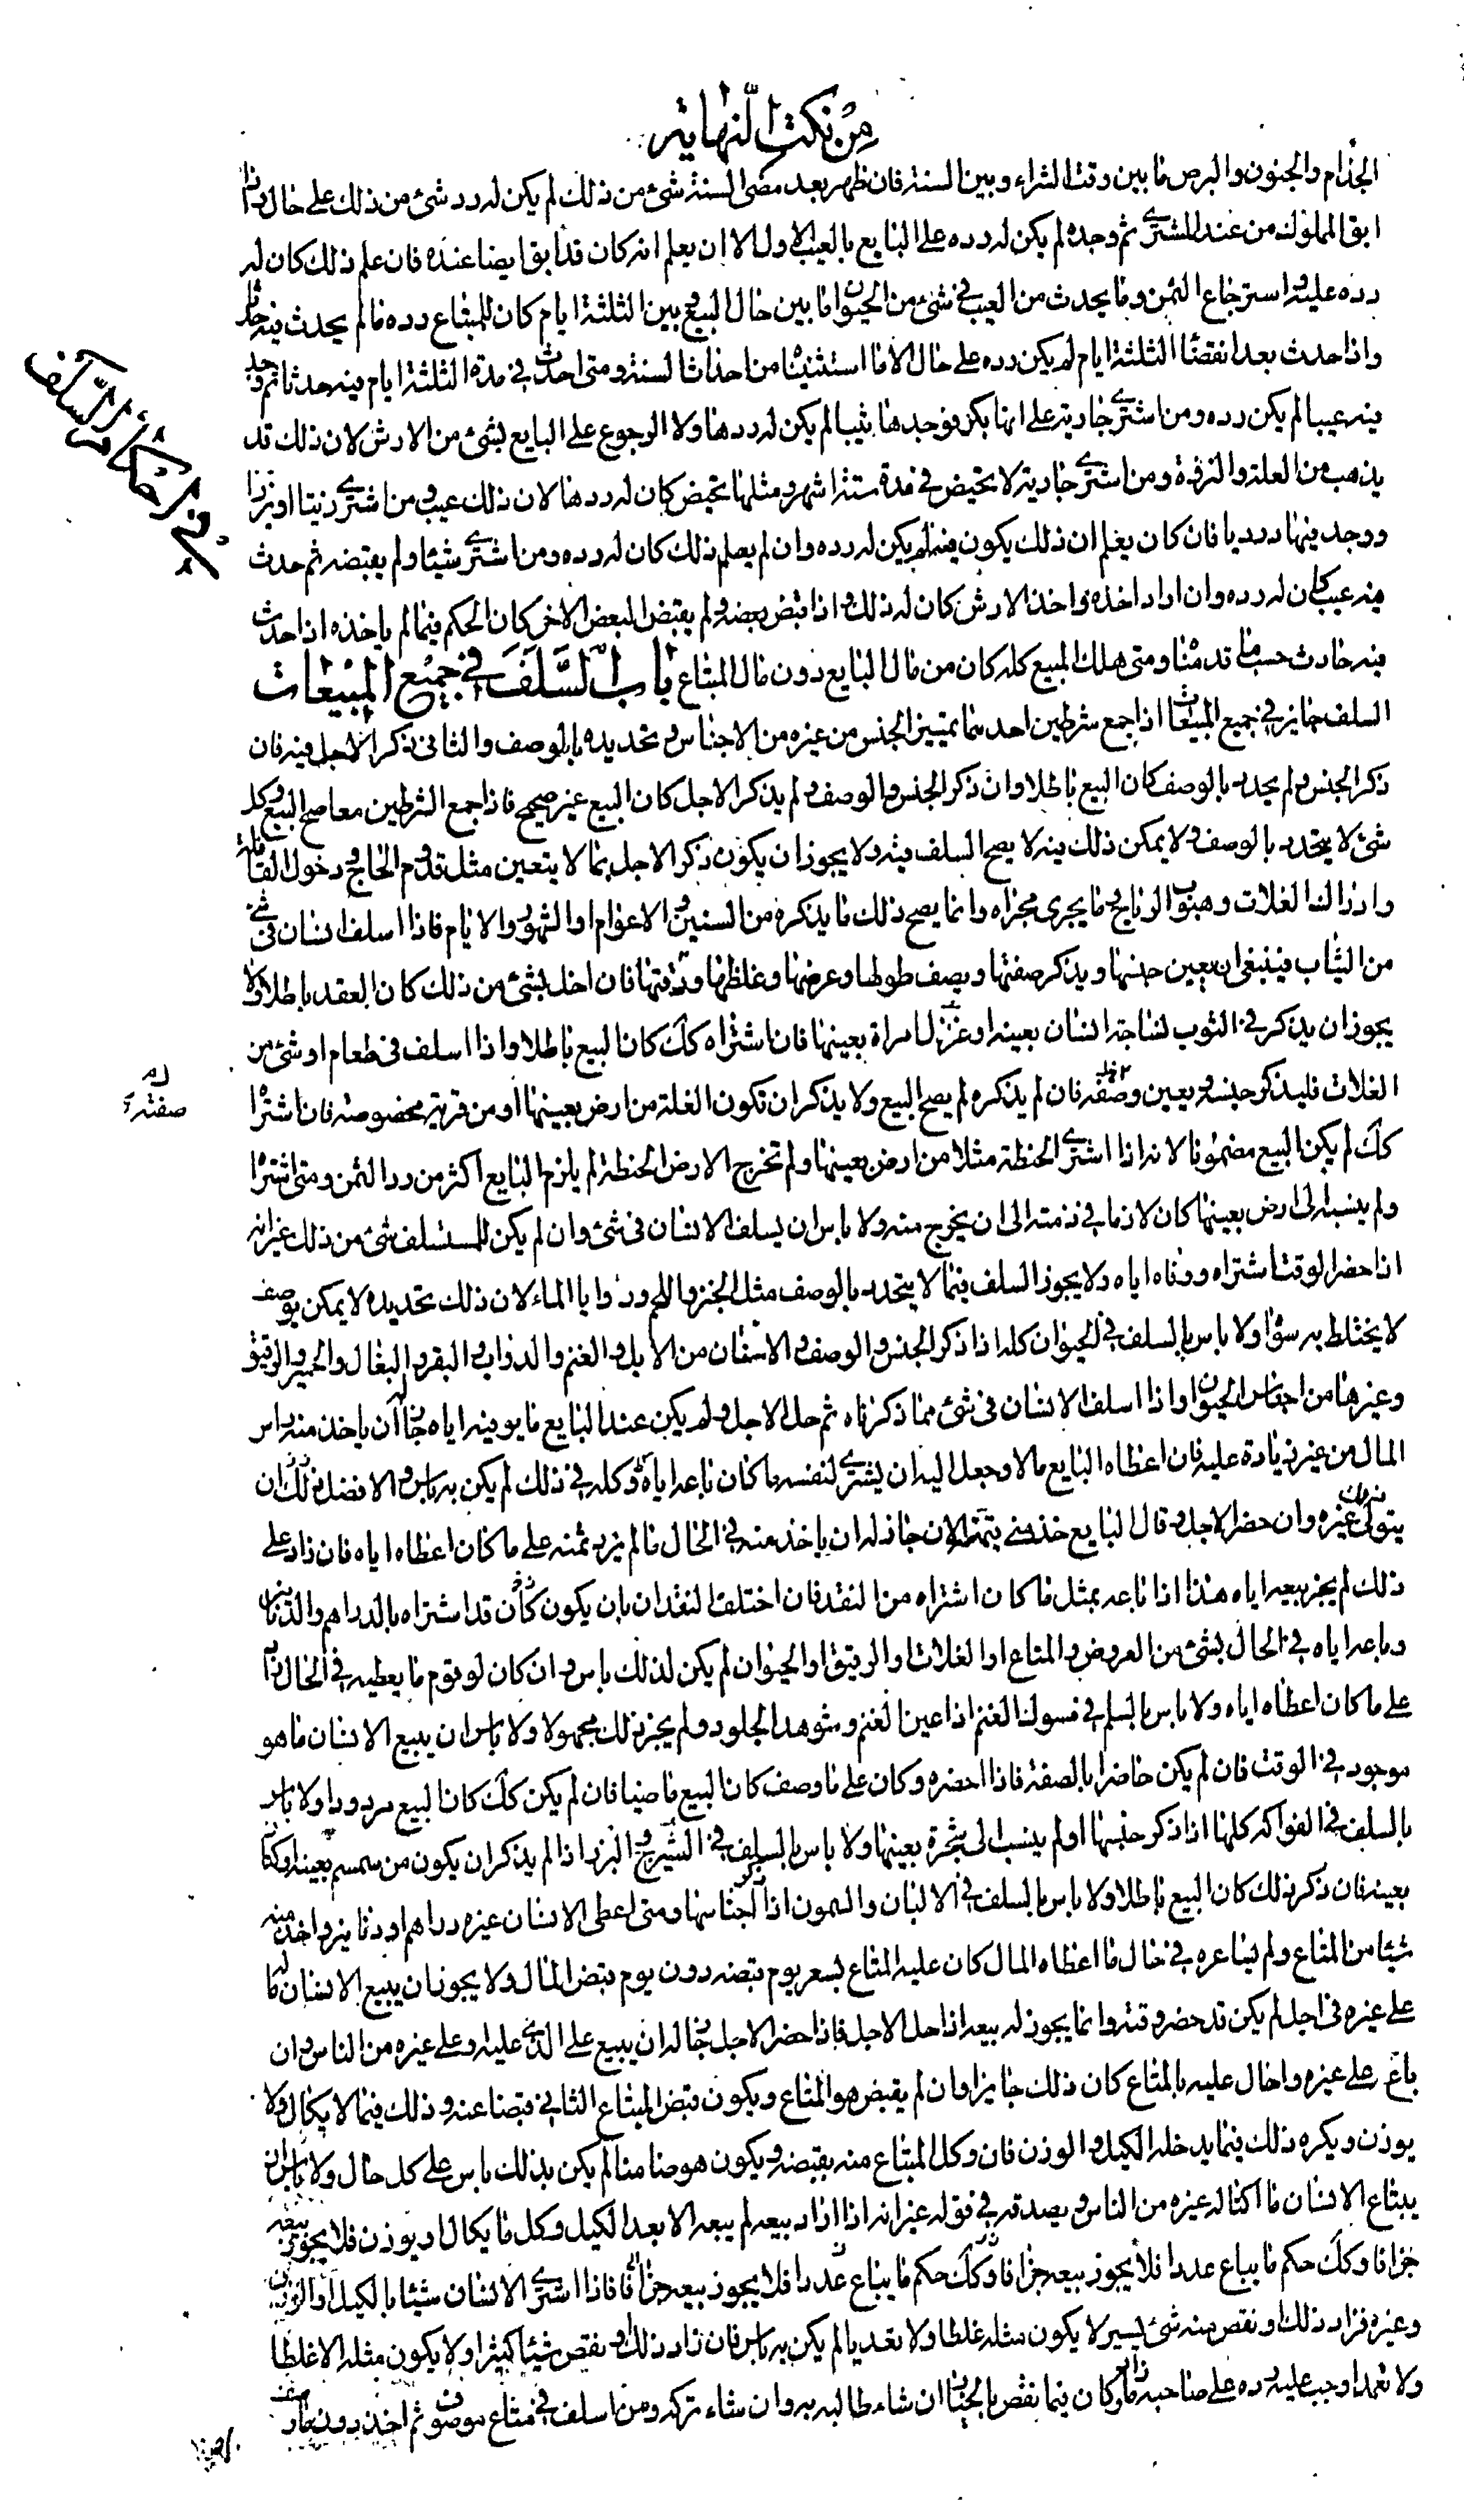 من نكت النهاية
الجذام والجنون والبرص ما بين وقت الشراء وبين السنة فان ظهر بعد مضى السنة شئ من ذلك لم يكن له رد شئ من ذلك على حال واذا
ابق المملوك من عند المشترى ثم وجده لم يكن له رده على البايع بالعيب الاول الا ان يعلم انه كان قد ابق ايضا عنده فان علم ذلك كان له
رده عليه واسترجاع الثمن وما يحدث من العيب فى شئ من الحيوان ما بين حال البيع وبين الثلثة ايام كان للمبتاع رده ما لم يحدث فيه حدثا
واذا حدث بعد انقضا الثلثة ايام لم يكن رده على حال الا ما استثنيناه من احداث السنة ومتى احدث فى مدة الثلثة ايام فيه حدثا ثم وجد
فيه عيبا لم يكن رده ومن اشترى جارية على انها بكر فوجدها ثيبا لم يكن له ردها ولا الرجوع على البايع بشئ من الارش لان ذلك قد
يذهب من العلة والنزقة ومن اشترى جارية لا تحيض فى مدة ستة اشهر ومثلها تحيض كان له ردها لان ذلك عيب ومن اشترى زيتا او بزرا
ووجد فيها درديا فان كان يعلم ان ذلك يكون فيه لم يكن له رده وان لم يعلم ذلك كان له رده ومن اشترى شيئا ولم يقبضه ثم حدث
فيه عيب كان له رده وان اراد اخذه واخذ الارش كان له ذلك واذا قبض بعضه ولم يقبض البعض الاخر كان الحكم فيما لم ياخذه اذا حدث
فيه حادث حسب ما قدمناه ومتى هلك المبيع كله كان من مال البايع دون مال المبتاع باب السلف فى جميع المبيعات
السلف جايز فى جميع المبيعات اذا جمع شرطين احدهما تمييز الجنس من غيره من الاجناس وتحديده بالوصف والثانى ذكر الاجل فيه فان
ذكر الجنس ولم يحدد بالوصف كان البيع باطلا وان ذكر الجنس والوصف ولم يذكر الاجل كان البيع غير صحيح فاذا جمع الشرطين معا صح البيع وكل
شئ لا يتحدد بالوصف ولا يمكن ذلك فيه لا يصح السلف فيه ولا يجوز ان يكون ذكر الاجل بما لا يتعين مثل قدوم الحاج ودخول القافلة
وادراك الغلات وهبوب الرياح وما يجرى مجراه وانما يصح ذلك ما يذكره من السنين والاعوام او الشهور والايام فاذا اسلف انسان فى شئ
من الثياب فينبغى ان يعين جنسها ويذكر صفتها ويصف طولها وعرضها وغلظها ودقتها فان اخل بشئ من ذلك كان العقد باطلا ولا
يجوز ان يذكر فى الثوب نساجة انسان بعينه او غزل امراة بعينها فان اشتراه كك كان البيع باطلا واذا اسلف فى طعام او شئ من
الغلات فليذكر جنسه ويعين وصفه فان لم يذكره لم يصح البيع ولا يذكر ان تكون الغلة من ارض بعينها او من قرية مخصوصة فان اشتراه
كك لم يكن البيع مضمونا لانه اذا اشترى الحنطة مثلا من ارض بعينها ولم تخرج الارض الحنطة لم يلزم البايع اكثر من رد الثمن ومتى اشتراه
ولم ينسبه الى ارض بعينها كان لازما فى ذمته الى ان يخرج منه ولا باس ان يسلف الانسان فى شئ وان لم يكن للمستسلف شئ من ذلك غير انه
اذا حضر الوقت اشتراه ووفاه اياه ولا يجوز السلف فيما لا يتحدد بالوصف مثل الخبز واللحم وروايا الماء لان ذلك تحديده لا يمكن بوصف
لا يختلط به سواه ولا باس بالسلف فى الحيوان كله اذا ذكر الجنس والوصف والاسنان من الابل والغنم والدواب والبقر والبغال والحمير والرقيق
وغيرها من اجناس الحيوان واذا اسلف الانسان فى شئ مما ذكرناه ثم حل الاجل ولم يكن عند البايع ما يوفيه اياه جاز له ان ياخذ منه راس
المال من غير زيادة عليه فان اعطاه البايع مالا وجعل اليه ان يشترى لنفسه ما كان باعه اياه ووكله فى ذلك لم يكن به باس والافضل فى ذلك ان
يتولى ذلك غيره وان حضر الاجل وقال البايع خذ منى قيمته الان جاز له ان ياخذ منه فى الحال ما لم يزد ثمنه على ما كان اعطاه اياه فان زاد على
ذلك لم يجز بيعه اياه هذا اذا باعه بمثل ما كان اشتراه من النقد فان اختلف النقدان بان يكون كان قد اشتراه بالدراهم والدنانير
وباعه اياه فى الحال بشئ من العروض والمتاع او الغلات او الرقيق او الحيوان لم يكن لذلك باس وان كان لو قوم ما يعطيه فى الحال زاد
على ما كان اعطاه اياه ولا باس بالسلم فى مسوك الغنم اذا عين الغنم وشوهد الجلود ولم يجز ذلك مجهولا ولا باس ان يبيع الانسان ما هو
موجود فى الوقت فان لم يكن حاضرا بالصفة فاذا احضره وكان على ما وصف كان البيع ماضيا فان لم يكن كك كان البيع مردودا ولا باس
بالسلف فى الفواكه كلها اذا ذكر جنسها او لم ينسب الى شجرة بعينها ولا باس بالسلف فى الشيرج والبزر اذا لم يذكر ان يكون من سمسم بعينه او كتان
بعينه فان ذكر ذلك كان البيع باطلا ولا باس بالسلف فى الالبان والسمون اذا ذكر اجناسها ومتى اعطى الانسان غيره دراهم او دنانير واخذ منه
شيئا من المتاع ولم يساعره فى حال ما اعطاه المال كان عليه المتاع بسعر يوم قبضه دون يوم قبض المال ولا يجوز ان يبيع الانسان ما له
على غيره فى اجل لم يكن قد حضر وقته وانما يجوز له بيعه اذا حل الاجل فاذا حضر الاجل جاز له ان يبيع على الذى عليه وعلى غيره من الناس وان
باع على غيره واحال عليه بالمتاع كان ذلك جايزا وان لم يقبض هو المتاع ويكون قبض المبتاع الثانى قبضا عنه وذلك فيما لا يكال ولا
يوزن ويكره ذلك فيما يدخله الكيل والوزن فان وكل المبتاع منه بقبضه ويكون هو ضامنا لم يكن بذلك باس على كل حال ولا باس ان
يبتاع الانسان ما اكتاله غيره من الناس ويصدقه فى قوله غير انه اذا اراد بيعه لم يبعه الا بعد الكيل وكل ما يكال او يوزن فلا يجوز بيعه
جزافا وكك حكم ما يباع عددا فلا يجوز بيعه جزافا وكك حكم ما يباع عددا فلا يجوز بيعه جزافا فاذا اشترى الانسان شيئا بالكيل او الوزن
وغيره فزاد ذلك او نقص منه شئ يسير لا يكون مثله غلطا ولا تعديا لم يكن به باس فان زاد ذلك او نقص شيئا كثيرا ولا يكون مثله الا غلطا
ولا تعمدا وجب عليه رده على صاحبه ما زاد وكان فيما نقص بالخيار ان شاء طالبه به وان شاء تركه ومن اسلف فى متاع موصوف ثم اخذ دون ما وصف
صفته